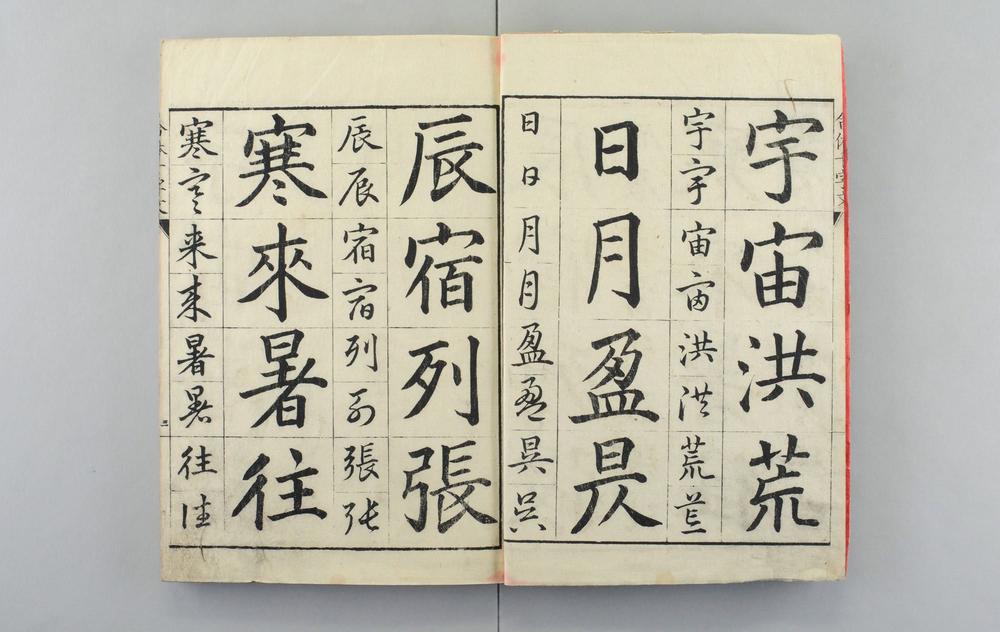 宇宙洪荒
宇宇宙宙洪洪荒荒
日月盈昃
日日月月盈盈昃昃
辰宿列張
辰辰宿宿列列張張
寒來暑往
寒寒来来暑暑往往